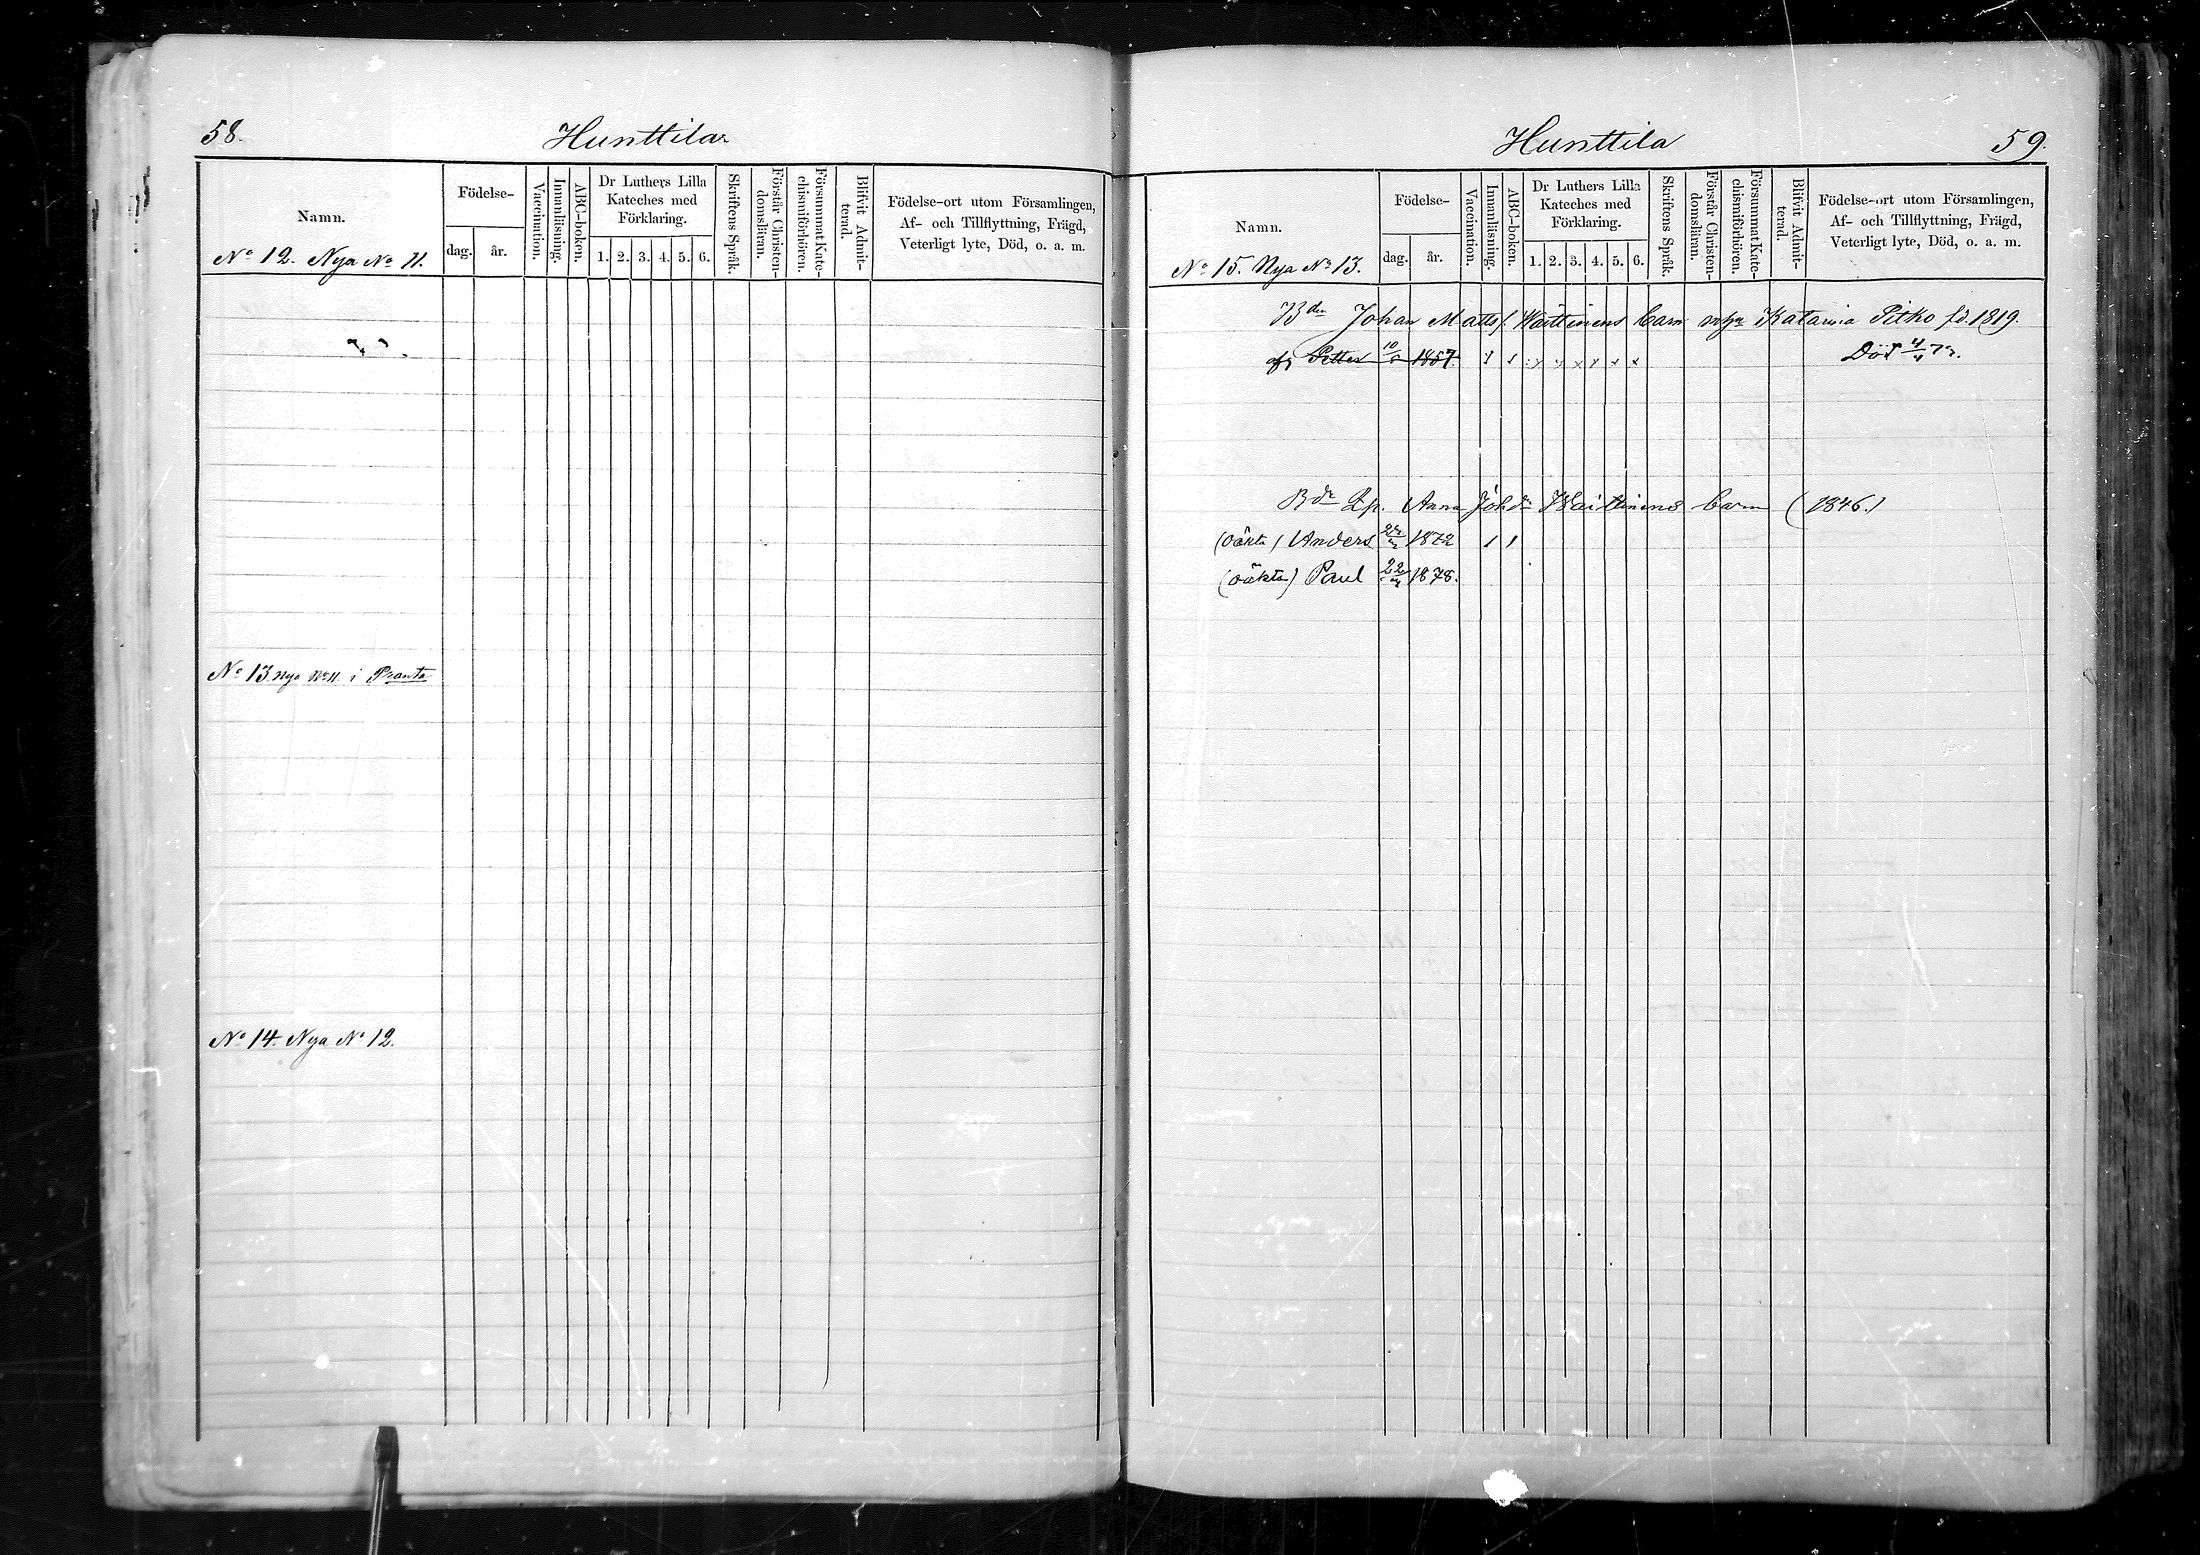 58.
Hunttila
Namn.
Födelse-
dag.
år.
Vaccination.
Innanläsning.
ABC-boken.
Dr Luthers Lilla
Kateches med
Förklaring.
1. 2. 3. 4. 5. 6.
Skriftens Språk.
Förstår Christen-
domsläran.
Försummat Kate-
chismiförhören.
Blifvit Admit-
terad.
Födelse-ort utom Församlingen,
Af- och Tillflyttning, Frägd,
Veterligt lyte, Död, o. a. m.
No 12. Nya No 11.
No 13 Nya No 11. i Pranta
No 14. Nya No 12.
Hunttila
59.
Namn.
Födelse-
dag.
år.
Vaccination.
Innanläsning.
ABC-boken.
Dr Luthers Lilla
Kateches med
Förklaring.
1. 2. 3. 4. 5. 6.
Skriftens Språk.
Förstår Christen-
domsläran.
Försummat Kate-
chismiförhören.
Blifvit Admit-
terad.
Födelse-ort utom Församlingen,
Af- och Tillflyttning, Frägd,
Veterligt lyte, Död, o. a. m.
No 15. Nya No 13.
Bdn Johan Matts f. Waittinens barn Katarina Pitko fd. 1819.
Petter 1857. Död
Bdr Lp. Anna Johdr Waittinens barn (1846.)
(oäkta) Anders 1872
(oäkta) Paul 22 1878.